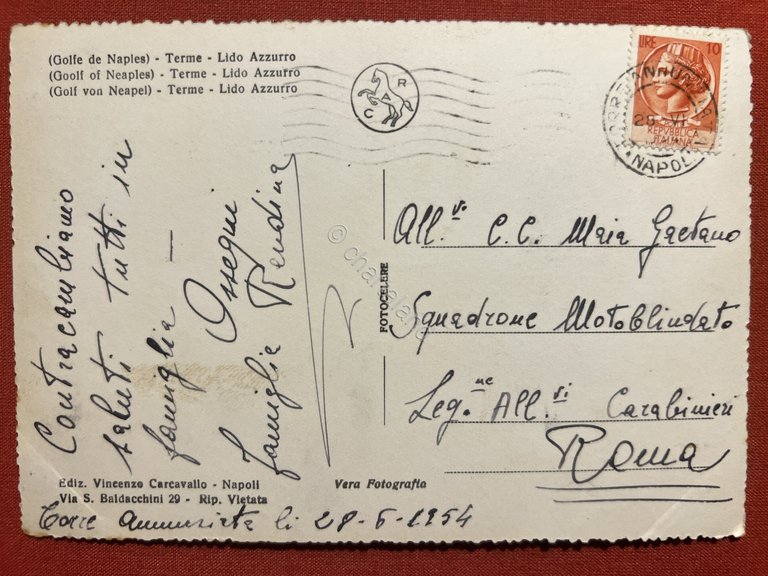 (Golfe de Naples) - Terme - Lido Azzurro
(Goolf of Neaples) - Terme - Lido Azzurro
(Golf von Neapel) - Terme - Lido Azzurro
R A C
LIRE 10
REPVBBLICA
ITALIANA
TORRE ANNUNZIATA
28 VI
NAPOLI
Contracambiamo
saluti tutti in
famiglia —
Ossequi
famiglia Rendina
FOTOCELERE
© charalana
All.vo C. C. Maia Gaetano
Squadrone Motoblindato
Leg.ne All.vi Carabinieri
Roma
Ediz. Vincenzo Carcavallo - Napoli
Via S. Baldacchini 29 - Rip. Vietata
Vera Fotografia
Torre Annunziata li 28-6-1954